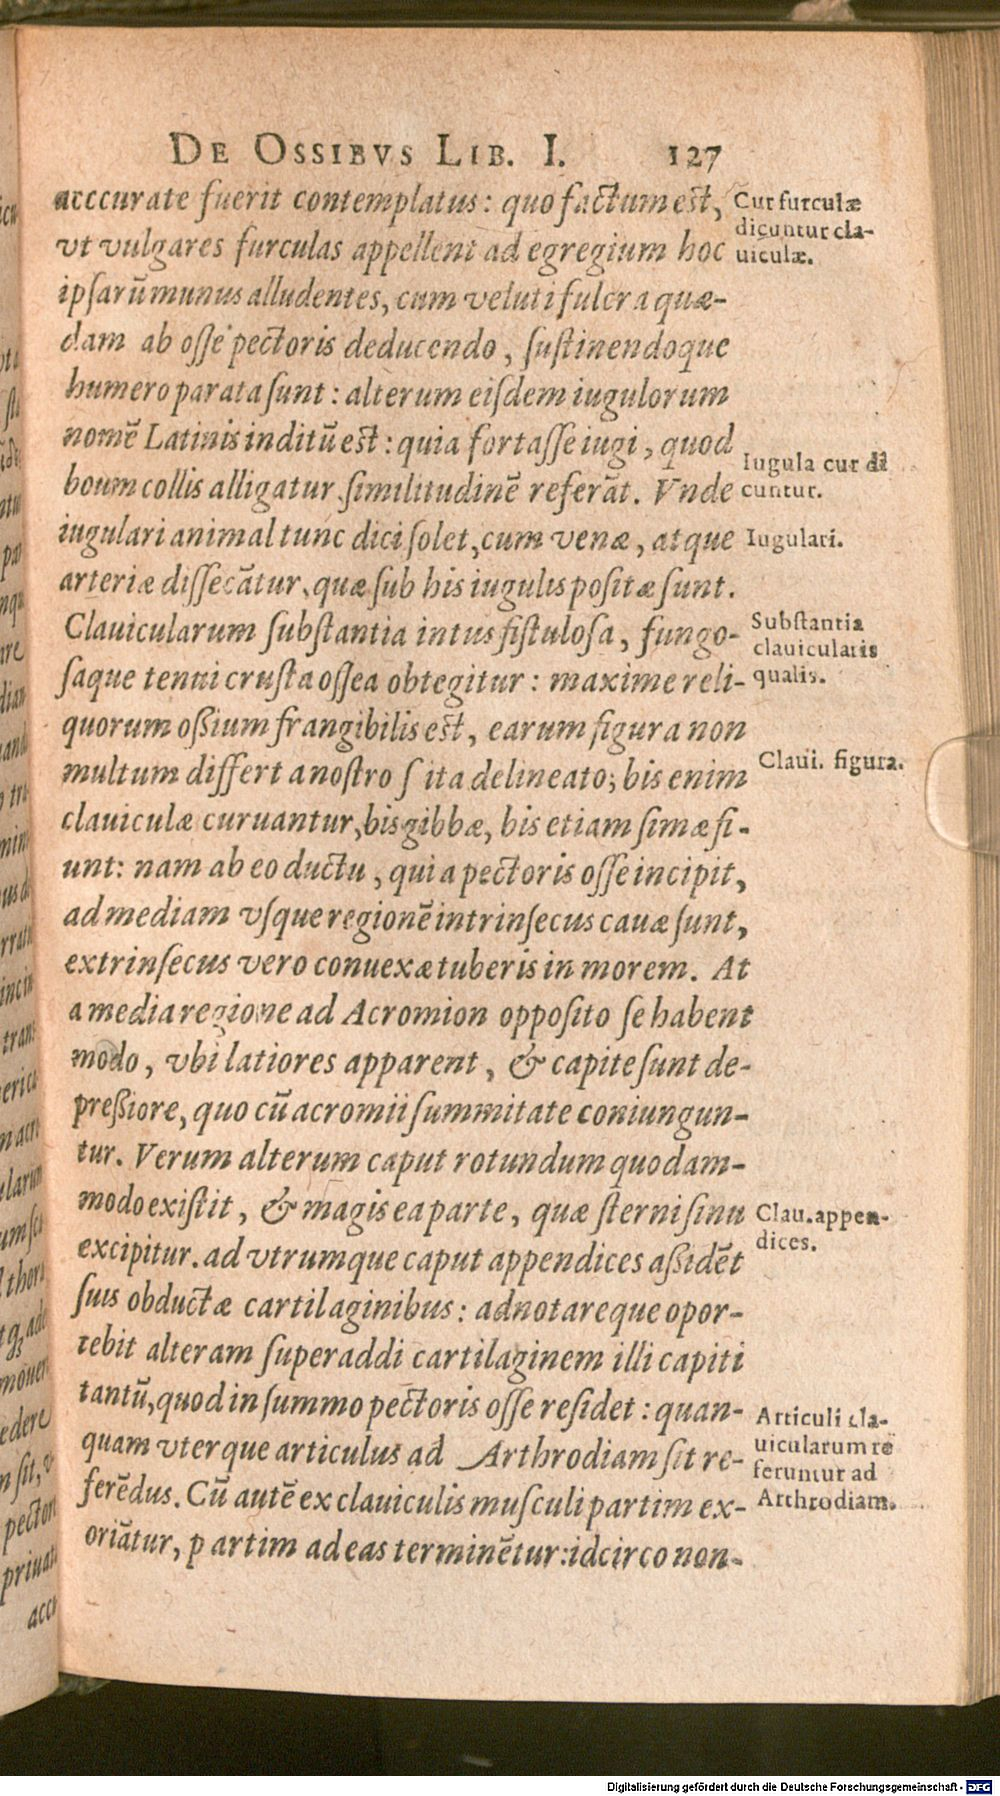 DE OSSIBVS LIB. I. 127
acccurate fuerit contemplatus: quo factum est,
vt vulgares furculas appellent ad egregium hoc
ipsarū munus alludentes, cum veluti fulcra quæ-
dam ab osse pectoris deducendo, sustinendoque
humero parata sunt: alterum eisdem iugulorum
nomē Latinis inditū est: quia fortasse iugi, quod
boum collis alligatur similitudinē referāt. Vnde
iugulari animal tunc dici solet, cum venæ, atque
arteriæ dissecātur, quæ sub his iugulis positæ sunt.
Clauicularum substantia intus fistulosa, fungo-
saque tenui crusta ossea obtegitur: maxime reli-
quorum ossium frangibilis est, earum figura non
multum differt a nostro ſ ita delineato; bis enim
clauiculæ curuantur, bis gibbæ, bis etiam simæ fi-
unt: nam ab eo ductu, qui a pectoris osse incipit,
ad mediam vsque regionē intrinsecus cauæ sunt,
extrinsecus vero conuexæ tuberis in morem. At
a media regione ad Acromion opposito se habent
modo, vbi latiores apparent, & capite sunt de-
pressiore, quo cū acromii summitate coniungun-
tur. Verum alterum caput rotundum quodam-
modo existit, & magis ea parte, quæ sterni sinu
excipitur. ad vtrumque caput appendices assidēt
suis obductæ cartilaginibus: adnotareque opor-
tebit alteram superaddi cartilaginem illi capiti
tantū, quod in summo pectoris osse residet: quan-
quam vterque articulus ad Arthrodiam sit re-
ferēdus. Cū autē ex clauiculis musculi partim ex-
oriātur, partim ad eas terminētur: idcirco non-
Cur furculæ
dicuntur cla-
uiculæ.
Iugula cur di
cuntur.
Iugulari.
Substantia
clauicularis
qualis.
Claui. figura.
Clau. appen-
dices.
Articuli cla-
uicularum re
feruntur ad
Arthrodiam.
Digitalisierung gefördert durch die Deutsche Forschungsgemeinschaft - DFG